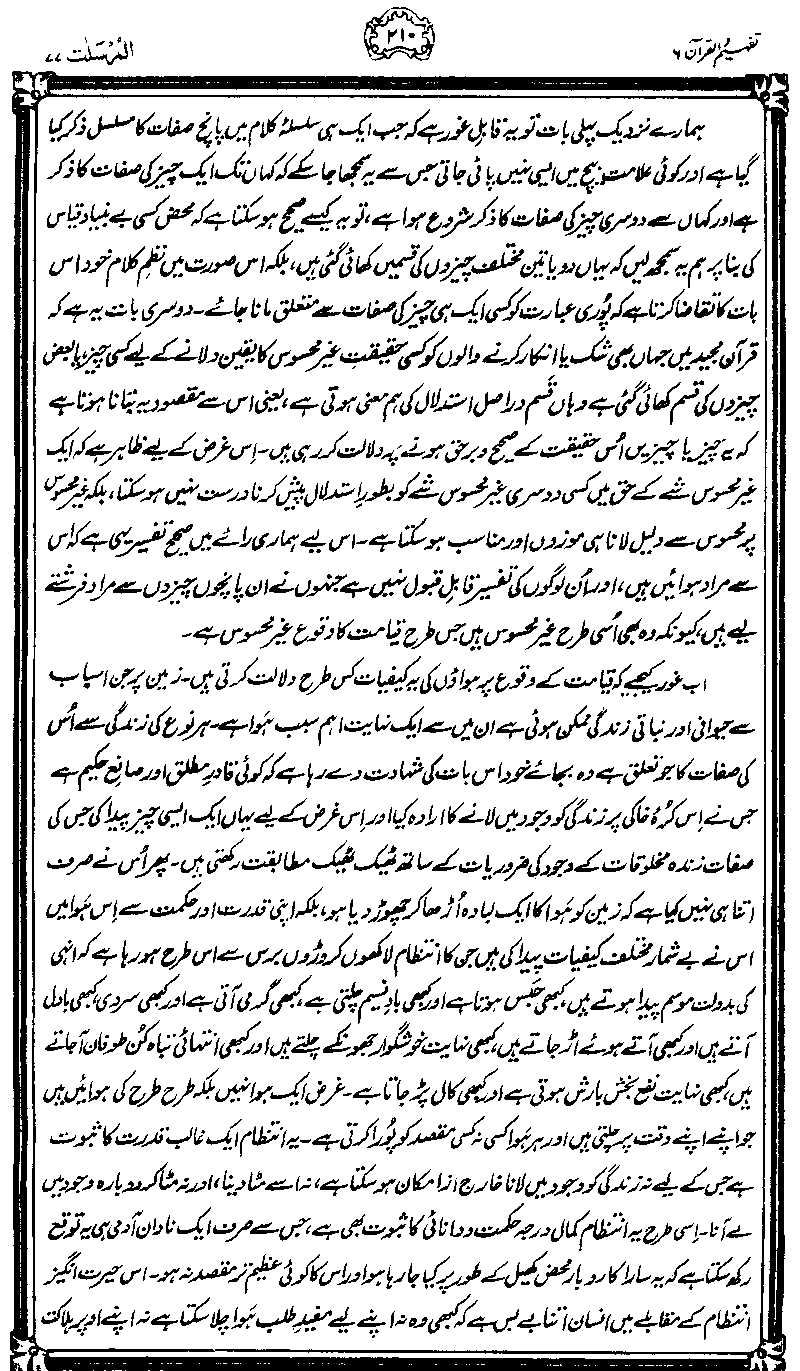 تفہیم القرآن ۶
۲۱۰
المُرْسَلٰت ۷۷
ہمارے نزدیک پہلی بات تو یہ قابلِ غور ہے کہ جب ایک ہی سلسلۂ کلام میں پانچ صفات کا مسلسل ذکر کیا
گیا ہے اور کوئی علامت بیچ میں ایسی نہیں پائی جاتی جس سے یہ سمجھا جا سکے کہ کہاں تک ایک چیز کی صفات کا ذکر
ہے اور کہاں سے دوسری چیز کی صفات کا ذکر شروع ہوا ہے، تو یہ کیسے صحیح ہو سکتا ہے کہ محض کسی بے بنیاد قیاس
کی بنا پر ہم یہ سمجھ لیں کہ یہاں دو یا تین مختلف چیزوں کی قسمیں کھائی گئی ہیں، بلکہ اس صورت میں نظمِ کلام خود اس
بات کا تقاضا کرتا ہے کہ پُوری عبارت کو کسی ایک ہی چیز کی صفات سے متعلق مانا جائے۔ دوسری بات یہ ہے کہ
قرآن مجید میں جہاں بھی شک یا انکار کرنے والوں کو کسی حقیقتِ غیر محسوس کا یقین دلانے کے لیے کسی چیز، یا بعض
چیزوں کی قسم کھائی گئی ہے وہاں قَسم دراصل استدلال کی ہم معنی ہوتی ہے، یعنی اس سے مقصود یہ بتانا ہوتا ہے
کہ یہ چیز یا چیزیں اُس حقیقت کے صحیح و برحق ہونے پہ دلالت کر رہی ہیں۔ اِس غرض کے لیے ظاہر ہے کہ ایک
غیر محسوس شے کے حق میں کسی دوسری غیر محسوس شے کو بطورِ استدلال پیش کرنا درست نہیں ہو سکتا، بلکہ غیر محسوس
پر محسوس سے دلیل لانا ہی موزوں اور مناسب ہو سکتا ہے۔ اس لیے ہماری رائے میں صحیح تفسیر یہی ہے کہ اس
سے مراد ہوائیں ہیں، اور اُن لوگوں کی تفسیر قابلِ قبول نہیں ہے جنہوں نے ان پانچوں چیزوں سے مراد فرشتے
لیے ہیں، کیونکہ وہ بھی اُسی طرح غیر محسوس ہیں جس طرح قیامت کا وقوع غیر محسوس ہے۔
اب غور کیجیے کہ قیامت کے وقوع پر ہواؤں کی یہ کیفیات کس طرح دلالت کرتی ہیں۔ زمین پر جن اسباب
سے حیوانی اور نباتی زندگی ممکن ہوئی ہے ان میں سے ایک نہایت اہم سبب ہَوا ہے۔ ہر نوع کی زندگی سے اُس
کی صفات کا جو تعلق ہے وہ بجائے خود اس بات کی شہادت دے رہا ہے کہ کوئی قادرِ مطلق اور صانعِ حکیم ہے
جس نے اِس کُرۂ خاکی پر زندگی کو وجود میں لانے کا ارادہ کیا اور اِس غرض کے لیے یہاں ایک ایسی چیز پیدا کی جس کی
صفات زندہ مخلوقات کے وجود کی ضروریات کے ساتھ ٹھیک ٹھیک مطابقت رکھتی ہیں۔ پھر اُس نے صرف
اتنا ہی نہیں کیا ہے کہ زمین کو ہَوا کا ایک لبادہ اُڑھا کر چھوڑ دیا ہو، بلکہ اپنی قدرت اور حکمت سے اِس ہَوا میں
اس نے بے شمار مختلف کیفیات پیدا کی ہیں جن کا انتظام لاکھوں کروڑوں برس سے اس طرح ہو رہا ہے کہ انہی
کی بدولت موسم پیدا ہوتے ہیں، کبھی حَبْس ہوتا ہے اور کبھی بادِ نسیم چلتی ہے، کبھی گرمی آتی ہے اور کبھی سردی، کبھی بادل
آتے ہیں اور کبھی آتے ہوئے اڑ جاتے ہیں، کبھی نہایت خوشگوار جھونکے چلتے ہیں اور کبھی انتہائی تباہ کُن طوفان آجاتے
ہیں، کبھی نہایت نفع بخش بارش ہوتی ہے اور کبھی کال پڑ جاتا ہے۔ غرض ایک ہوا نہیں بلکہ طرح طرح کی ہوائیں ہیں
جو اپنے اپنے وقت پر چلتی ہیں اور ہر ہَوا کسی نہ کسی مقصد کو پُورا کرتی ہے۔ یہ انتظام ایک غالب قدرت کا ثبوت
ہے جس کے لیے نہ زندگی کو وجود میں لانا خارج از امکان ہو سکتا ہے، نہ اسے مٹا دینا، اور نہ مٹا کر دوبارہ وجود میں
لے آنا۔ اِسی طرح یہ انتظام کمال درجہ حکمت و دانائی کا ثبوت بھی ہے، جس سے صرف ایک نادان آدمی ہی یہ توقع
رکھ سکتا ہے کہ یہ سارا کاروبار محض کھیل کے طور پر کیا جا رہا ہو اور اس کا کوئی عظیم تر مقصد نہ ہو۔ اس حیرت انگیز
انتظام کے مقابلے میں انسان اتنا بے بس ہے کہ کبھی وہ نہ اپنے لیے مفیدِ طلب ہَوا چلا سکتا ہے نہ اپنے اوپر ہلاکت